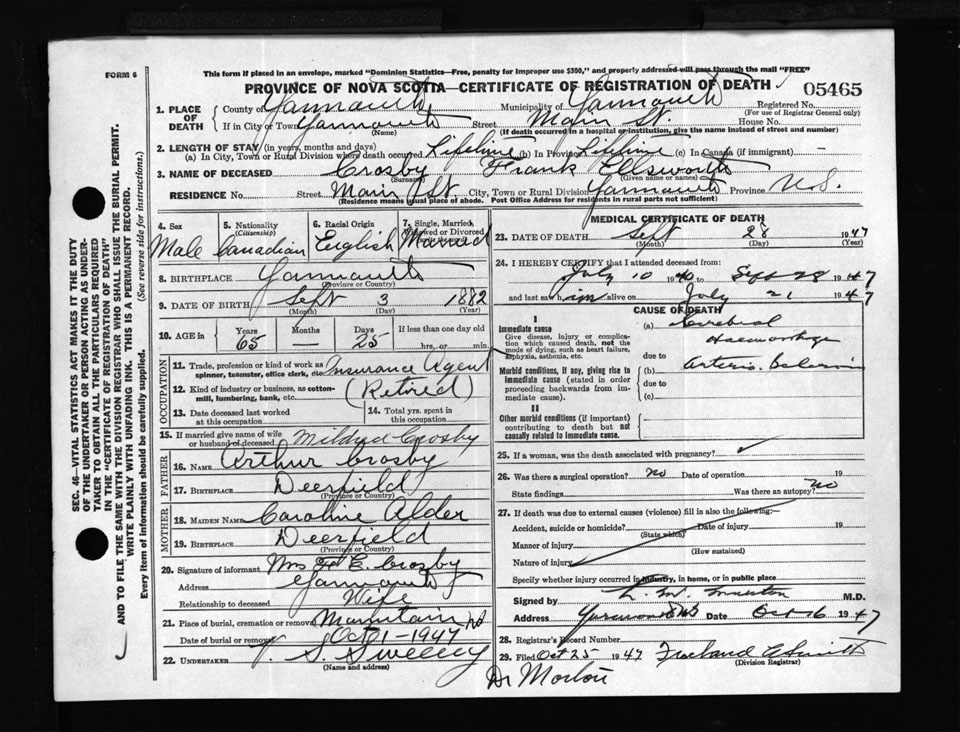 FORM 6
This form if placed in an envelope, marked "Dominion Statistics—Free, penalty for improper use $300," and properly addressed will pass through the mail "FREE"
PROVINCE OF NOVA SCOTIA—CERTIFICATE OF REGISTRATION OF DEATH
05465
1. PLACE OF DEATH
County of Yarmouth Municipality of Yarmouth Registered No.
(For use of Registrar General only)
If in City or Town Yarmouth Street Main St. House No.
(Name) (If death occurred in a hospital or institution, give the name instead of street and number)
2. LENGTH OF STAY (in years, months and days)
(a) In City, Town or Rural Division where death occurred Lifetime (b) In Province Lifetime (c) In Canada (if immigrant) —
3. NAME OF DECEASED Crosby Frank Ellsworth
(Surname) (Given name or names)
RESIDENCE No. Street Main St. City, Town or Rural Division Yarmouth Province N.S.
(Residence means usual place of abode. Post Office Address for residents in rural parts not sufficient)
4. Sex 5. Nationality (Citizenship) 6. Racial Origin 7. Single, Married, Widowed or Divorced
Male Canadian English Married
8. BIRTHPLACE Yarmouth
(Province or Country)
9. DATE OF BIRTH Sept 3 1882
(Month) (Day) (Year)
10. AGE in Years Months Days If less than one day old
65 — 25 hrs. or min.
OCCUPATION
11. Trade, profession or kind of work as spinner, teamster, office clerk, etc. Insurance Agent
12. Kind of industry or business, as cotton-mill, lumbering, bank, etc. (Retired)
13. Date deceased last worked at this occupation
14. Total yrs. spent in this occupation
15. If married give name of wife or husband of deceased Mildred Crosby
FATHER
16. NAME Arthur Crosby
17. BIRTHPLACE Deerfield
(Province or Country)
MOTHER
18. MAIDEN NAME Caroline Alder
19. BIRTHPLACE Deerfield
(Province or Country)
20. Signature of informant Mrs F E. Crosby
Address Yarmouth
Relationship to deceased Wife
21. Place of burial, cremation or removal Mountain
Date of burial or removal Oct 1-1947
22. UNDERTAKER V. S. Sweeny
(Name and address)
MEDICAL CERTIFICATE OF DEATH
23. DATE OF DEATH Sept 28 1947
(Month) (Day) (Year)
24. I HEREBY CERTIFY that I attended deceased from:
July 10 1940 to Sept 28 1947
and last saw him alive on July 21 1947
CAUSE OF DEATH
I
Immediate cause
Give disease, injury or complication which caused death, not the mode of dying, such as heart failure, asphyxia, asthenia, etc.
(a) Cerebral Haemorrhage
due to
Morbid conditions, if any, giving rise to immediate cause (stated in order proceeding backwards from immediate cause).
(b) Arterio.
due to
(c)
II
Other morbid conditions (if important) contributing to death but not causally related to immediate cause.
25. If a woman, was the death associated with pregnancy?
26. Was there a surgical operation? no Date of operation 19
State findings Was there an autopsy? no
27. If death was due to external causes (violence) fill in also the following:—
Accident, suicide or homicide? Date of injury 19
(State which)
Manner of injury
(How sustained)
Nature of injury
Specify whether injury occurred in industry, in home, or in public place
Signed by L. M. M.D.
Address Yarmouth NS Date Oct 16 1947
28. Registrar's Record Number
29. Filed Oct 25 1947
(Division Registrar)
Dr Morton
SEC. 46—VITAL STATISTICS ACT MAKES IT THE DUTY
OF THE UNDERTAKER OR PERSON ACTING AS UNDER-
TAKER TO OBTAIN ALL THE PARTICULARS REQUIRED
IN THE "CERTIFICATE OF REGISTRATION OF DEATH"
AND TO FILE THE SAME WITH THE DIVISION REGISTRAR WHO SHALL ISSUE THE BURIAL PERMIT.
WRITE PLAINLY WITH UNFADING INK. THIS IS A PERMANENT RECORD.
Every item of information should be carefully supplied. (See reverse side for instructions.)